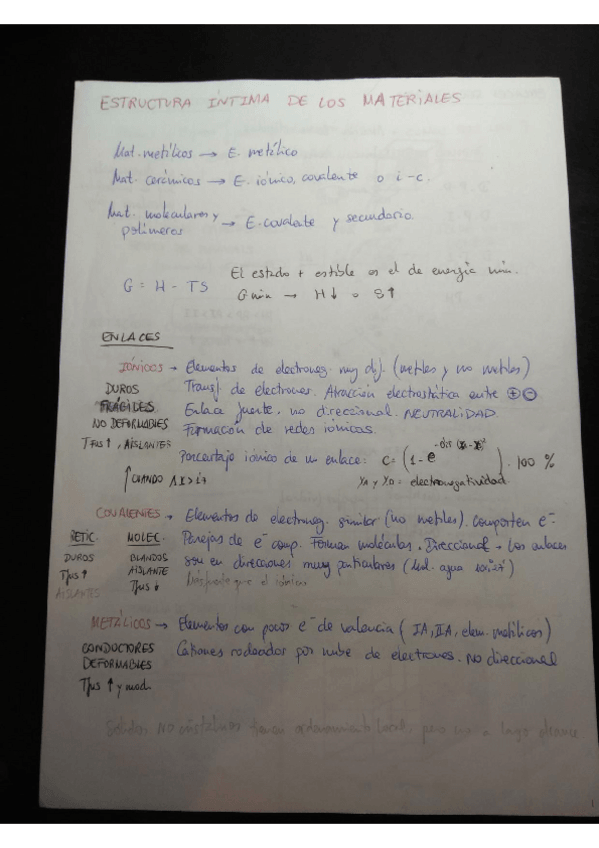 ESTRUCTURA ÍNTIMA DE LOS MATERIALES
Mat. metálicos → E. metálico
Mat. cerámicos → E. iónico, covalente o i-c.
Mat. moleculares y polímeros → E. covalente y secundario.
G = H - TS
El estado + estable es el de energía mín.
G mín → H↓ o S↑
ENLACES
IÓNICOS → Elementos de electroneg. muy dif. (metales y no metales)
DUROS
Transf. de electrones. Atracción electrostática entre ⊕⊖
FRÁGILES
Enlace fuerte, no direccional. NEUTRALIDAD.
NO DEFORMABLES
Formación de redes iónicas.
Tfus ↑, AISLANTES
Porcentaje iónico de un enlace: C = (1 - e ) . 100 %
↑ CUANDO
XA y XB = electronegatividad.
COVALENTES → Elementos de electroneg. similar (no metales). Comparten e-
RETIC. MOLEC.
Parejas de e- comp. Forman moléculas. Direccional → Los enlaces
DUROS BLANDOS
son en direcciones muy particulares (Mol. agua
Tfus ↑ AISLANTE
AISLANTES Tfus
que el iónico
METÁLICOS → Elementos con pocos e- de valencia (IA, IIA, elem. metálicos)
CONDUCTORES
Cationes rodeados por nube de electrones. No direccional
DEFORMABLES
Tfus ↑ y mod.
Sólidos NO cristalinos tienen ordenamiento local, pero no a largo alcance